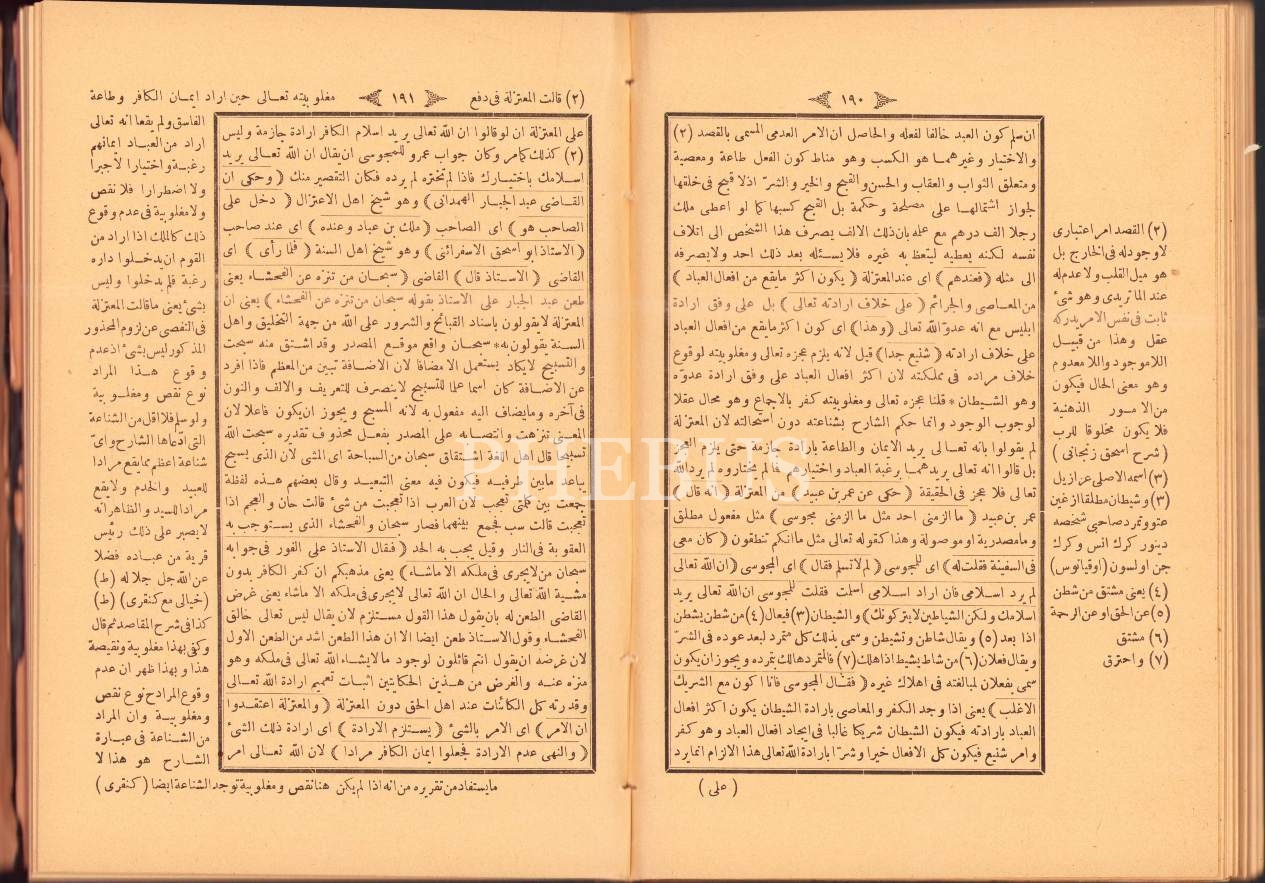 ١٩٠
ان سلم كون العبد خالقا لفعله والحاصل ان الامر العدمى المسمى بالقصد (٢)
والاختيار وغيرهما هو الكسب وهو مناط كون الفعل طاعة ومعصية
ومتعلق الثواب والعقاب والحسن والقبيح والخير والشر اذ لا قبيح فى خلقها
لجواز اشتمالها على مصلحة وحكمة بل القبيح كسبها كما لو اعطى ملك
رجلا الف درهم مع علمه بان ذلك الالف يصرف هذا الشخص الى اتلاف
نفسه لكنه يعطيه ليتعظ به غيره فلا يسئله بعد ذلك احد ولا يصرفه
الى مثله (فعندهم) اى عند المعتزلة (يكون اكثر ما يقع من افعال العباد)
من المعاصى والجرائم (على خلاف ارادته تعالى) بل على وفق ارادة
ابليس مع انه عدو الله تعالى (وهذا) اى كون اكثر ما يقع من افعال العباد
على خلاف ارادته (شنيع جدا) قيل لانه يلزم عجزه تعالى ومغلوبيته لوقوع
خلاف مراده فى مملكته لان اكثر افعال العباد على وفق ارادة عدوه
وهو الشيطان * قلنا عجزه تعالى ومغلوبيته كفر بالاجماع وهو محال عقلا
لوجوب الوجود وانما حكم الشارح بشناعته دون استحالته لان المعتزلة
لم يقولوا بانه تعالى يريد الايمان والطاعة بارادة جازمة حتى يلزم العجز
بل قالوا انه تعالى يريدهما برغبة العباد واختيارهم فالم مختاروه لم يرد الله
تعالى فلا عجز فى الحقيقة (حكى عن عمر بن عبيد) من المعتزلة (انه قال)
عمر بن عبيد (ما الزمنى احد مثل ما الزمنى مجوسى) مثل مفعول مطلق
وما مصدرية او موصولة وهذا كقوله تعالى مثل ما انكم تنطقون (كان معى
فى السفينة فقلت له) اى للمجوسى (لم لا تسلم فقال) اى المجوسى (ان الله تعالى
لم يرد اسلامى فان اراد اسلامى اسلمت فقلت للمجوسى ان الله تعالى يريد
اسلامك ولكن الشياطين لا يتركونك) والشيطان (٣) فيعال (٤) من شطن يشطن
اذا بعد (٥) ويقال شاطن وتشيطن وسمى بذلك كل متمرد لبعد عوده فى الشر
ويقال فعلان (٦) من شاط يشيط اذا هلك (٧) فالمتمرد هالك بتمرده ويجوز ان يكون
سمى بفعلان لمبالغته فى اهلاك غيره (فقال المجوسى فانا اكون مع الشريك
الاغلب) يعنى اذا وجد الكفر والمعاصى بارادة الشيطان يكون اكثر افعال
العباد بارادته فيكون الشيطان شريكا غالبا فى ايجاد افعال العباد وهو كفر
وامر شنيع فيكون كل الافعال خيرا وشرا بارادة الله تعالى هذا الالزام انما يرد
(على)
(٢) القصد امر اعتبارى
لا وجود له فى الخارج بل
هو ميل القلب ولا عدم له
عند الماتريدى وهو شئ
ثابت فى نفس الامر يدركه
عقل وهذا من قبيل
اللاموجود واللا معدوم
وهو معنى الحال فيكون
من الامور الذهنية
فلا يكون مخلوقا للرب
(شرح اسحق زنجانى)
(٣) اسمه الاصلى عزازيل
(٣) وشيطان مطلقا ازغين
عتو وتمرد صاحبى شخصه
دينور كرك انس وكرك
جن اولسون (اوقيانوس)
(٤) يعنى مشتق من شطن
(٥) عن الحق او عن الرحمة
(٦) مشتق
(٧) واحترق
١٩١
على المعتزلة ان لو قالوا ان الله تعالى يريد اسلام الكافر ارادة جازمة وليس
(٢) كذلك كما مر وكان جواب عمرو للمجوسى ان يقال ان الله تعالى يريد
اسلامك باختيارك فاذا لم تختره لم يرده فكان التقصير منك (وحكى ان
القاضى عبد الجبار الهمدانى) وهو شيخ اهل الاعتزال (دخل على
الصاحب هو) اى الصاحب (ملك بن عباد وعنده) اى عند صاحب
(الاستاذ ابو اسحق الاسفرائنى) وهو شيخ اهل السنة (فلما رأى) اى
القاضى (الاستاذ قال) القاضى (سبحان من تنزه عن الفحشاء) يعنى
طعن عبد الجبار على الاستاذ بقوله سبحان من تنزه عن الفحشاء) يعنى ان
المعتزلة لا يقولون باسناد القبائح والشرور على الله من جهة التخليق واهل
السنة يقولون به * سبحان واقع موقع المصدر وقد اشتق منه سبحت
والتسبيح لا يكاد يستعمل الا مضافا لان الاضافة تبين من المعظم فاذا افرد
عن الاضافة كان اسما علما للتسبيح لا ينصرف للتعريف والالف والنون
فى آخره وما يضاف اليه مفعول به لانه المسبح ويجوز ان يكون فاعلا لان
المعنى تنزهت وانتصابه على المصدر بفعل محذوف تقديره سبحت الله
تسبيحا قال اهل اللغة اشتقاق سبحان من السباحة اى المشى لان الذى يسبح
يباعد ما بين طرفيه فيكون فيه معنى التبعيد وقال بعضهم هذه لفظة
جمعت بين كلمتى تعجب لان العرب اذا تعجبت من شئ قالت حان والعجم اذا
تعجبت قالت سب فجمع بينهما فصار سبحان والفحشاء الذى يستوجب به
العقوبة فى النار وقيل يجب به الحد (فقال الاستاذ على الفور فى جوابه
سبحان من لا يجرى فى ملكه الا ما شاء) يعنى مذهبكم ان كفر الكافر بدون
مشية الله تعالى والحال ان الله تعالى لا يجرى فى ملكه الا ما شاء يعنى غرض
القاضى الطعن له بان يقول هذا القول مستلزم لان يقال ليس تعالى خالق
الفحشاء وقول الاستاذ طعن ايضا الا ان هذا الطعن اشد من الطعن الاول
لان غرضه ان يقول انتم قائلون لوجود ما لا يشاء الله تعالى فى ملكه وهو
منزه عنه والغرض من هذين الحكايتين اثبات تعميم ارادة الله تعالى
وقدرته كل الكائنات عند اهل الحق دون المعتزلة (والمعتزلة اعتقدوا
ان الامر) اى الامر بالشئ (يستلزم الارادة) اى ارادة ذلك الشئ
(والنهى عدم الارادة فجعلوا ايمان الكافر مرادا) لان الله تعالى امر
(٢) قالت المعتزلة فى دفع
مغلوبيته تعالى حين اراد ايمان الكافر وطاعة
الفاسق ولم يقعا انه تعالى
اراد من العباد ايمانهم
رغبة واختيارا لا جبرا
ولا اضطرارا فلا نقص
ولا مغلوبية فى عدم وقوع
ذلك كالملك اذا اراد من
القوم ان يدخلوا داره
رغبة فلم يدخلوا وليس
بشئ يعنى ما قالت المعتزلة
فى التفصى عن لزوم المحذور
المذكور ليس بشئ اذ عدم
وقوع هذا المراد
نوع نقص ومغلوبية
ولو سلم فلا اقل من الشناعة
التى ادعاها الشارح واى
شناعة اعظم مما يقع مرادا
للعبيد والخدم ولا يقع
مرادا للسيد والظاهر انه
لا يصبر على ذلك رئيس
قرية من عباده فضلا
عن الله جل جلاله (ط)
(خيالى مع كنقرى) (ط)
كذا فى شرح المقاصد ثم قال
وكفى بهذا مغلوبية ونقيصة
هذا وبهذا ظهر ان عدم
وقوع المراد ح نوع نقص
ومغلوبية وان المراد
من الشناعة فى عبارة
الشارح هو هذا لا
ما يستفاد من تقريره من انه اذا لم يكن هنا نقص ومغلوبية توجد الشناعة ايضا (كنقرى)
PHEBUS